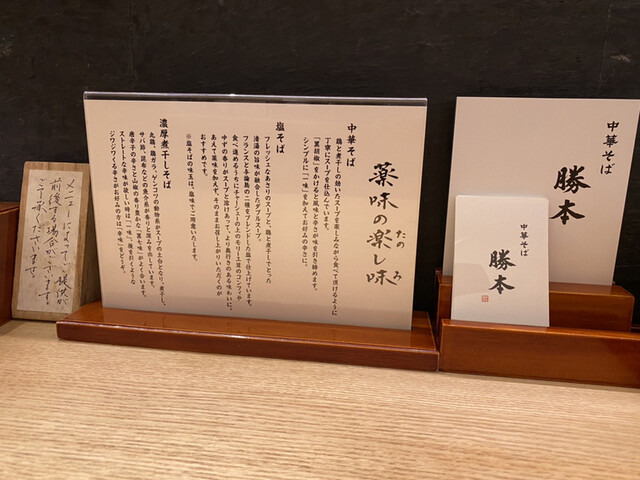 薬味の楽し味
たの
み
中華そば
鶏と煮干しの効いたスープを楽しみながら食べて頂けるように
丁寧にスープを仕込んでいます。
「黒胡椒」をかけると風味と辛さが味を引き締めます。
シンプルに「一味」を加えてお好みの辛さに。
塩そば
フレッシュなあさりのスープと、鶏と煮干しでとった
清湯の旨味が融合したダブルスープ。
フランスと与論島の二種をブレンドした塩で仕上げています。
食べ進めるうちにチャーシューの上のモリーユ茸のコンフィや
ゆずの香りがスープと溶けあって、より奥行きのある味わいに。
あえて薬味を加えず、そのままお召し上がりいただくのが
おすすめです。
※塩そばの味玉は、塩味でご用意いたします。
濃厚煮干しそば
丸鶏、鶏ガラ、ゲンコツの動物系がスープの土台となり、煮干し、
サバ節、昆布などの魚介系が香りと深みを出しています。
唐辛子の辛さと山椒の香り豊かな「黒七味」がよく合います。
ストレートな辛味が欲しい時は「一味」、後を引くような
ジワジワくる辛さがお好みの方は「辛味」をどうぞ。
メニューによって、提供が
前後する場合がございます。
ご了承くださいませ。
中華そば
勝本
中華そば
勝本